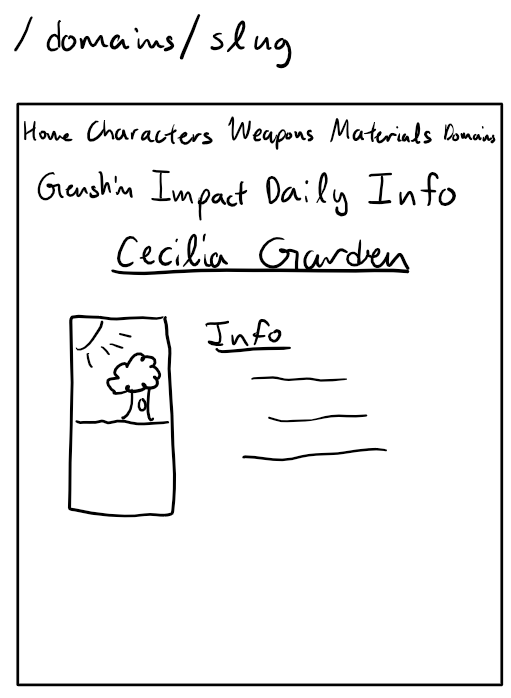 /domains/slug
Home Characters Weapons Materials Domains
Genshin Impact Daily Info
Cecilia Garden
Info